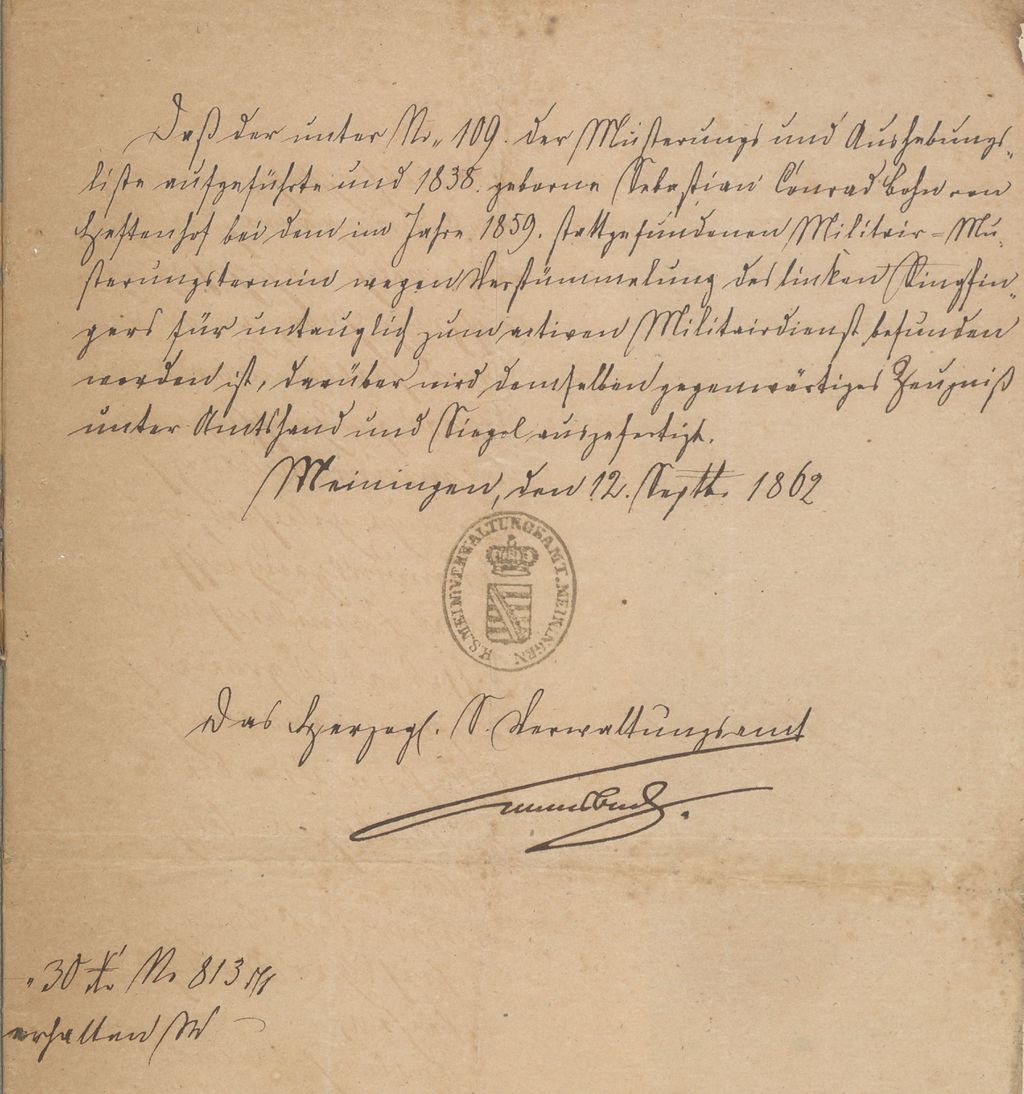 Daß der unter No 109. der Musterungs und Aushebungs-
liste aufgeführte und 1838. geborne Sebastian Conrad Bohn von
Heftenhof bei dem im Jahre 1859. stattgefundenen Militair=Mu-
sterungstermin wegen Verstümmelung des linken Ringfin-
gers für untauglich zum activen Militairdienst befunden
worden ist, darüber wird demselben gegenwärtiges Zeugniß
unter Amtshand und Siegel ausgefertigt.
Meiningen, den 12. Septb. 1862
H.S.MEIN.VERWALTUNGSAMT.MEININGEN
Das Herzogl. S. Verwaltungsamt
30 Xr No 813
erhalten